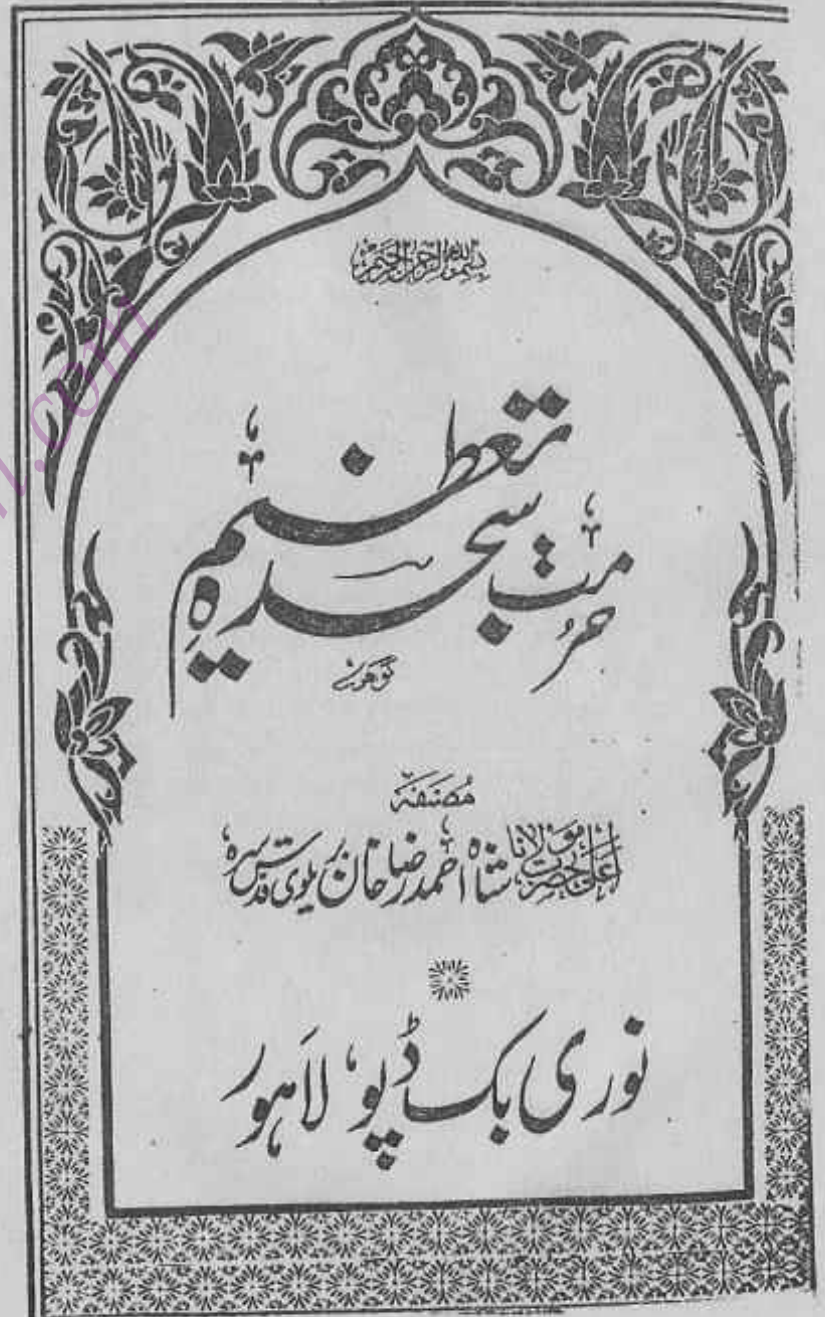 بسم الله الرحمن الرحيم
حرمت سجدہ تعظیم
گوھر
مصنفہ
اعلیٰ حضرت مولانا شاہ احمد رضا خان بریلوی قدس سرہ
نوری بک ڈپو، لاہور